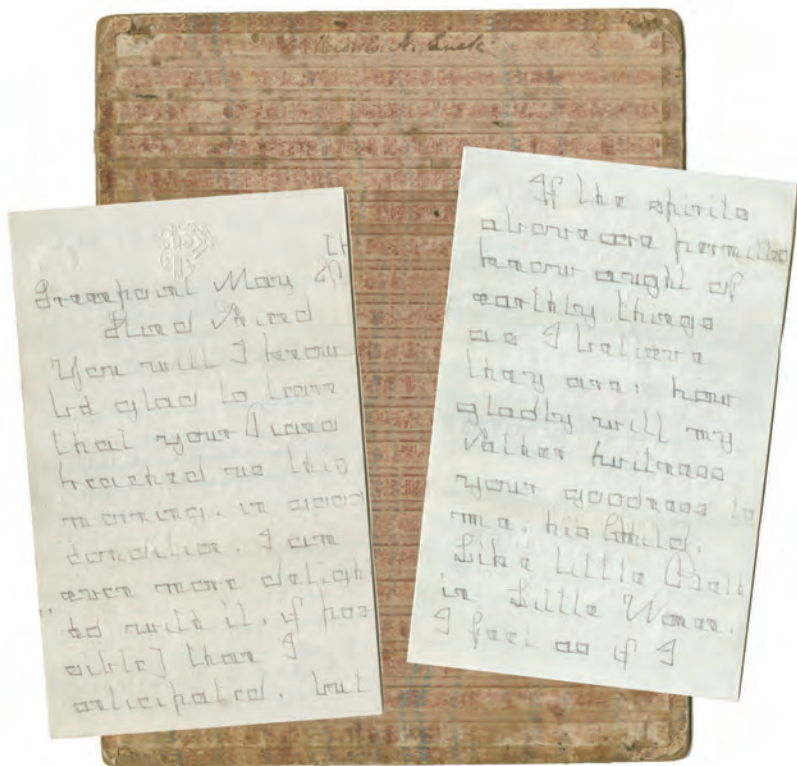 th
Greenpoint May
Kind Friend
You will I know
be glad to learn
that your Piano
reached us this
morning. in good
condition. I am
even more deligh
"ted with it, if pos
sible] than I
anticipated. but
If the spirits
above are permitted
know aught of
earthly things
as I believe
they are; how
gladly will my
Father witness
your goodness to
me; his Child.
Like little Beth
in Little Women.
I feel as if I